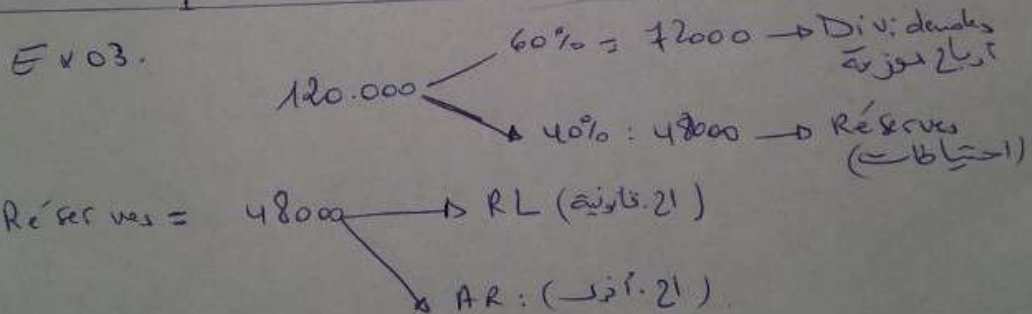 Ex 03.
120.000
60% = 72000 → Dividendes
أرباح موزعة
40% : 48000 → Réserves
(احتياطات)
Réserves = 48000 → RL (اح. قانونية)
AR : (اح. أخرى).